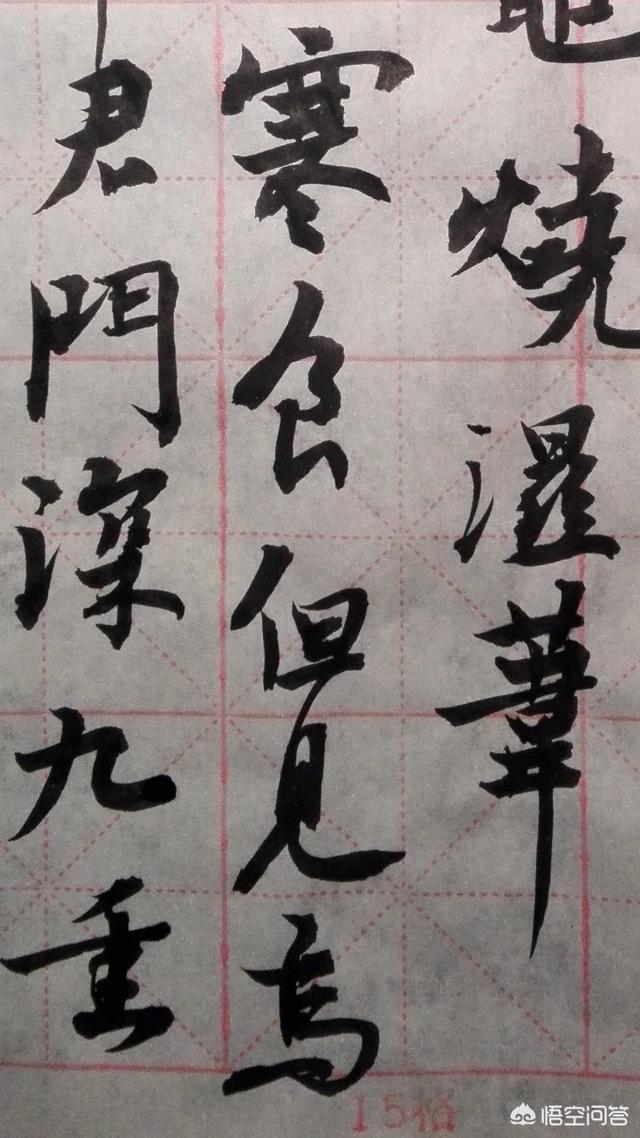 燒濕葦
寒食但見烏
君門深九重
15格
悟空问答